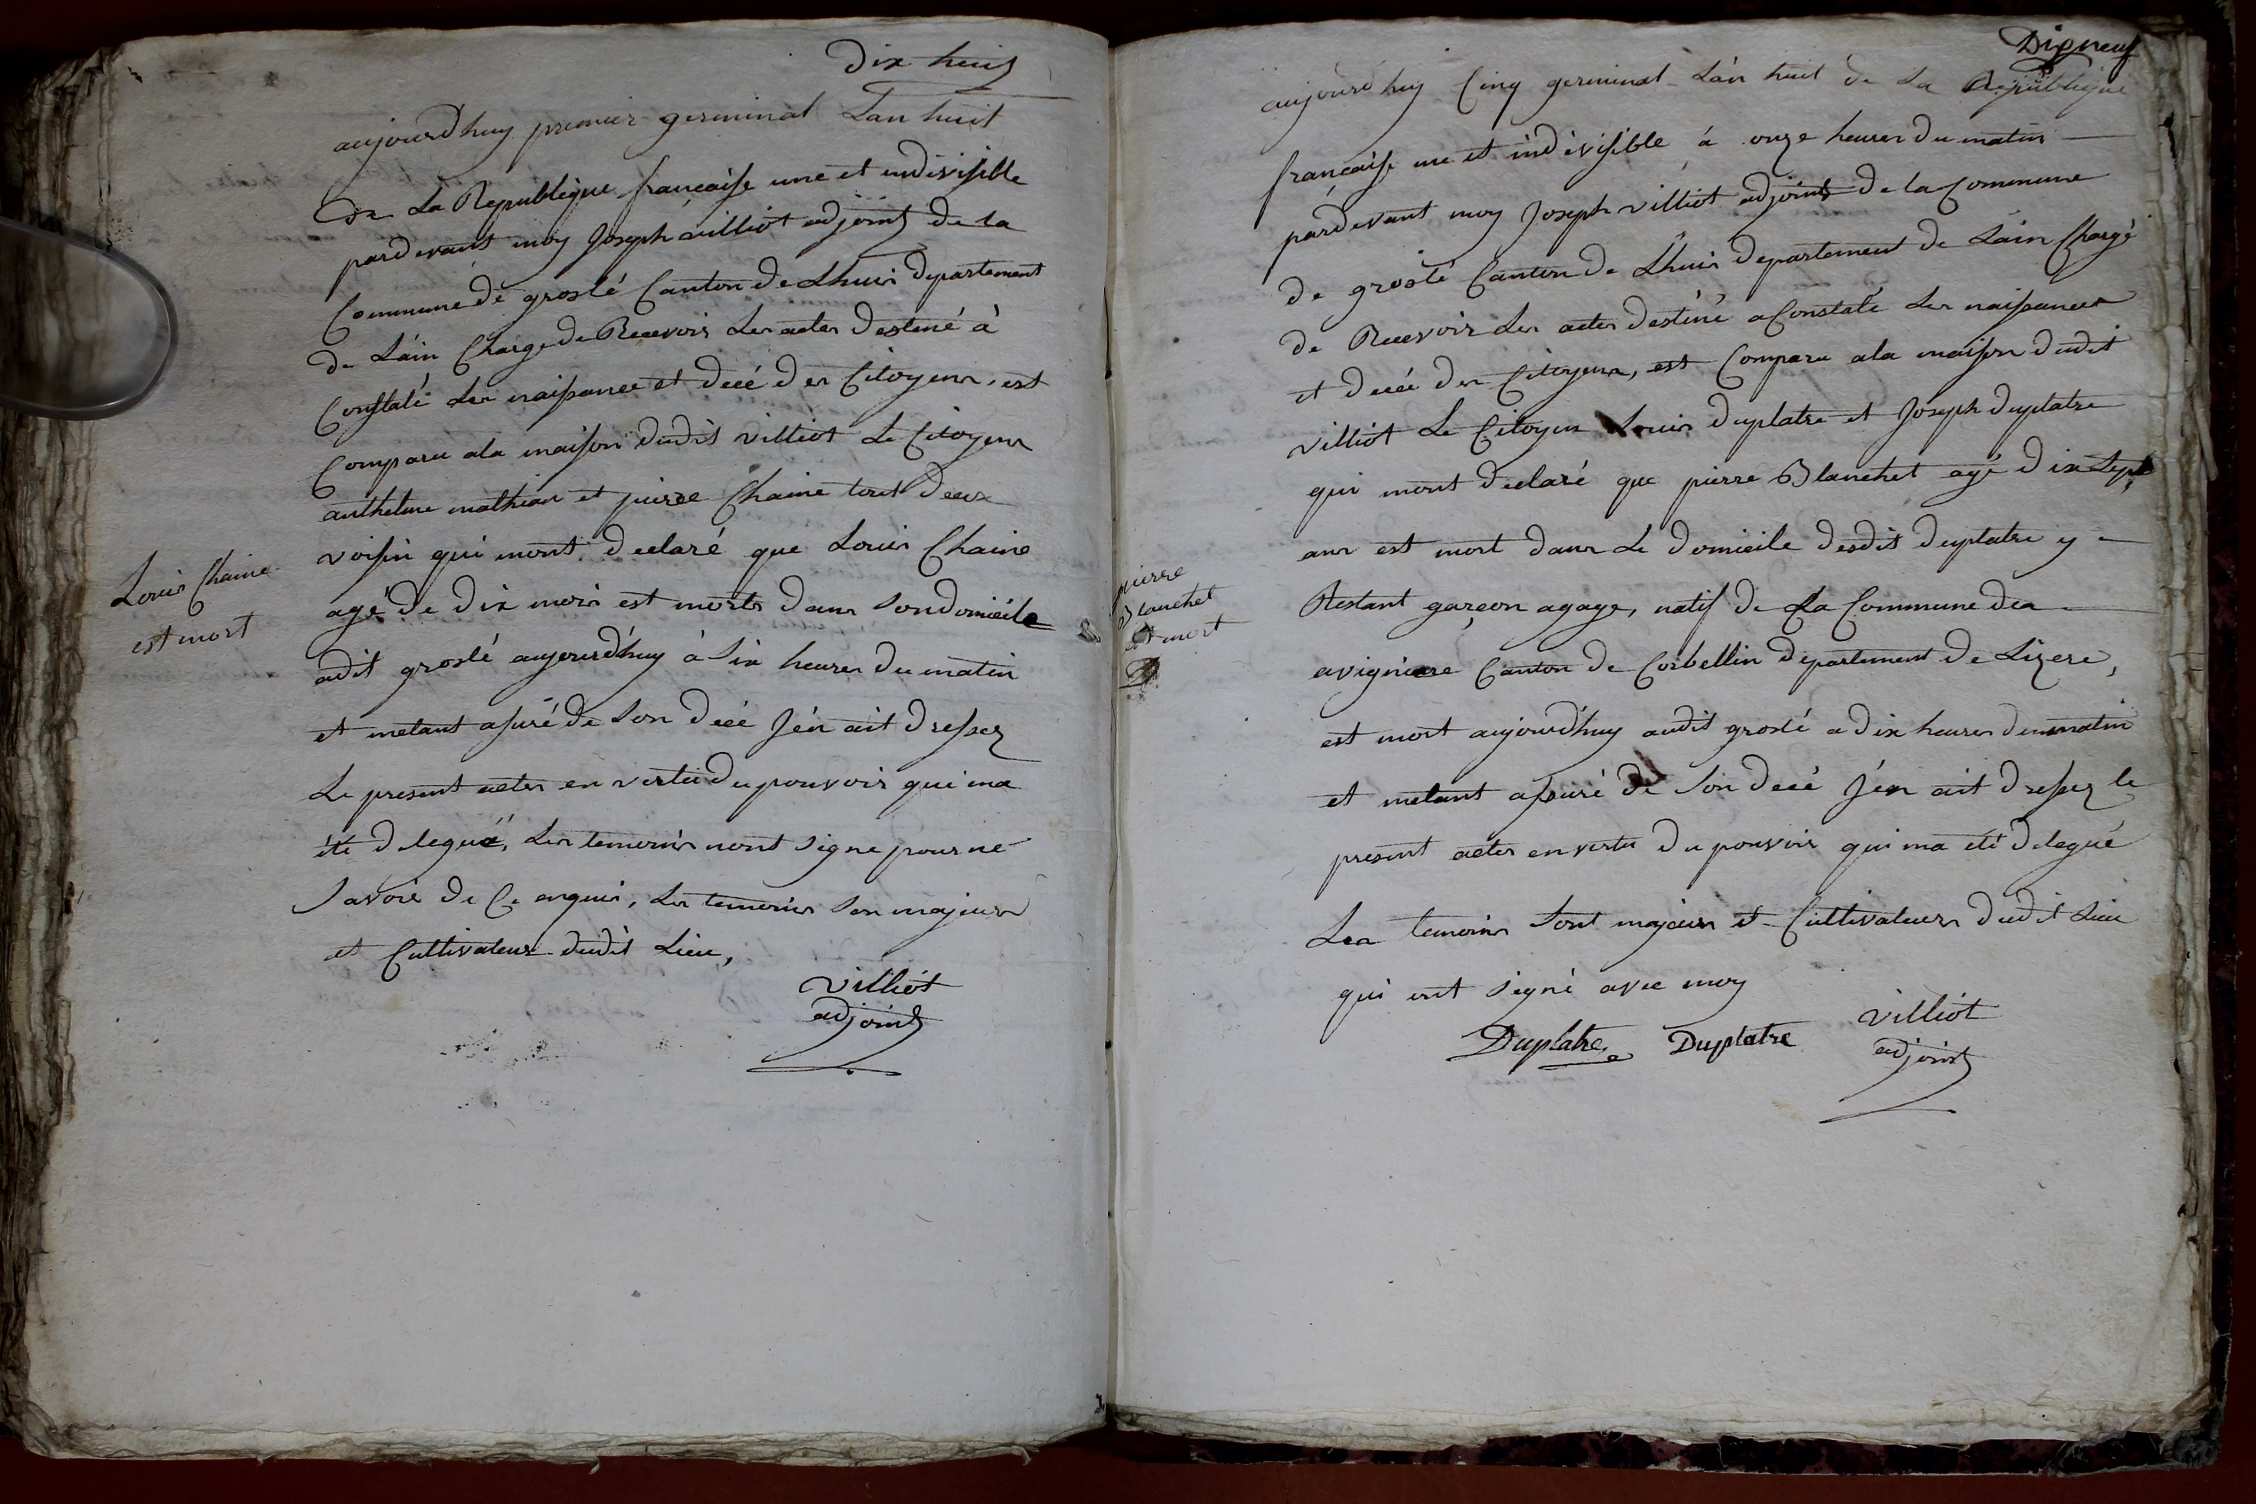 dix huit
aujourdhuy premier germinal Lan huit
de La Republique francaise une et indivisible
pardevant moy Joseph villiot adjoint de la
Commune de groslé Canton de Lhuis departement
de Láin Charge de Recevoir Les actes destiné à
Constaté Les naissance et decé des Citoyens, est
Comparu ala maison dudit villiot Le Citoyens
anthelme mathias et pierre Chaine tout deux
voisin qui mont declaré que Louis Chaine
agé de dix mois est morts dans Son domicile
Louis Chaine
est mort
adit groslé aujourd'huy à Six heures du matin
et metant asuré de Son decé J'én ait dressez
Le present actes en vertu du pouvoir qui ma
été delegué, Les temoins nont Signe pour ne
Savoir de Ce enquis, Les temoins Son majeurs
et Cultivateur dudit Lieu,
villiot
adjoint
Dixneuf
aujourdhuy Cinq germinal Lán huit de La Republique
francaise une et indivisible á onze heures du matin
pardevant moy Joseph villiot adjoint de la Commune
de groslé Canton de Lhuis departement de Láin Chargé
de Recevoir Les actes destiné aConstaté Les naissances
et decée des Citoyens, est Comparu ala maison dudit
villiot Le Citoyen Louis duplatre et Joseph duplatre
qui mont declaré que pierre Blanchet agé dix Sept
ans est mort dans Le domicile desdit duplatre y
pierre
Blanchet
est mort
Restant garçon agage, natif de La Commune des
avigniere Canton de Corbellin departement de Lizere,
est mort aujourdhuy audit groslé a dix heures du matin
et metant assuré de Son decé J'én ait dressez le
present actes en vertu du pouvoir qui ma été delegué
Les temoins Sont majeurs et Cultivateurs dudit Lieu
qui ont Signé avec moy
Duplatre Duplatre villiot
adjoint